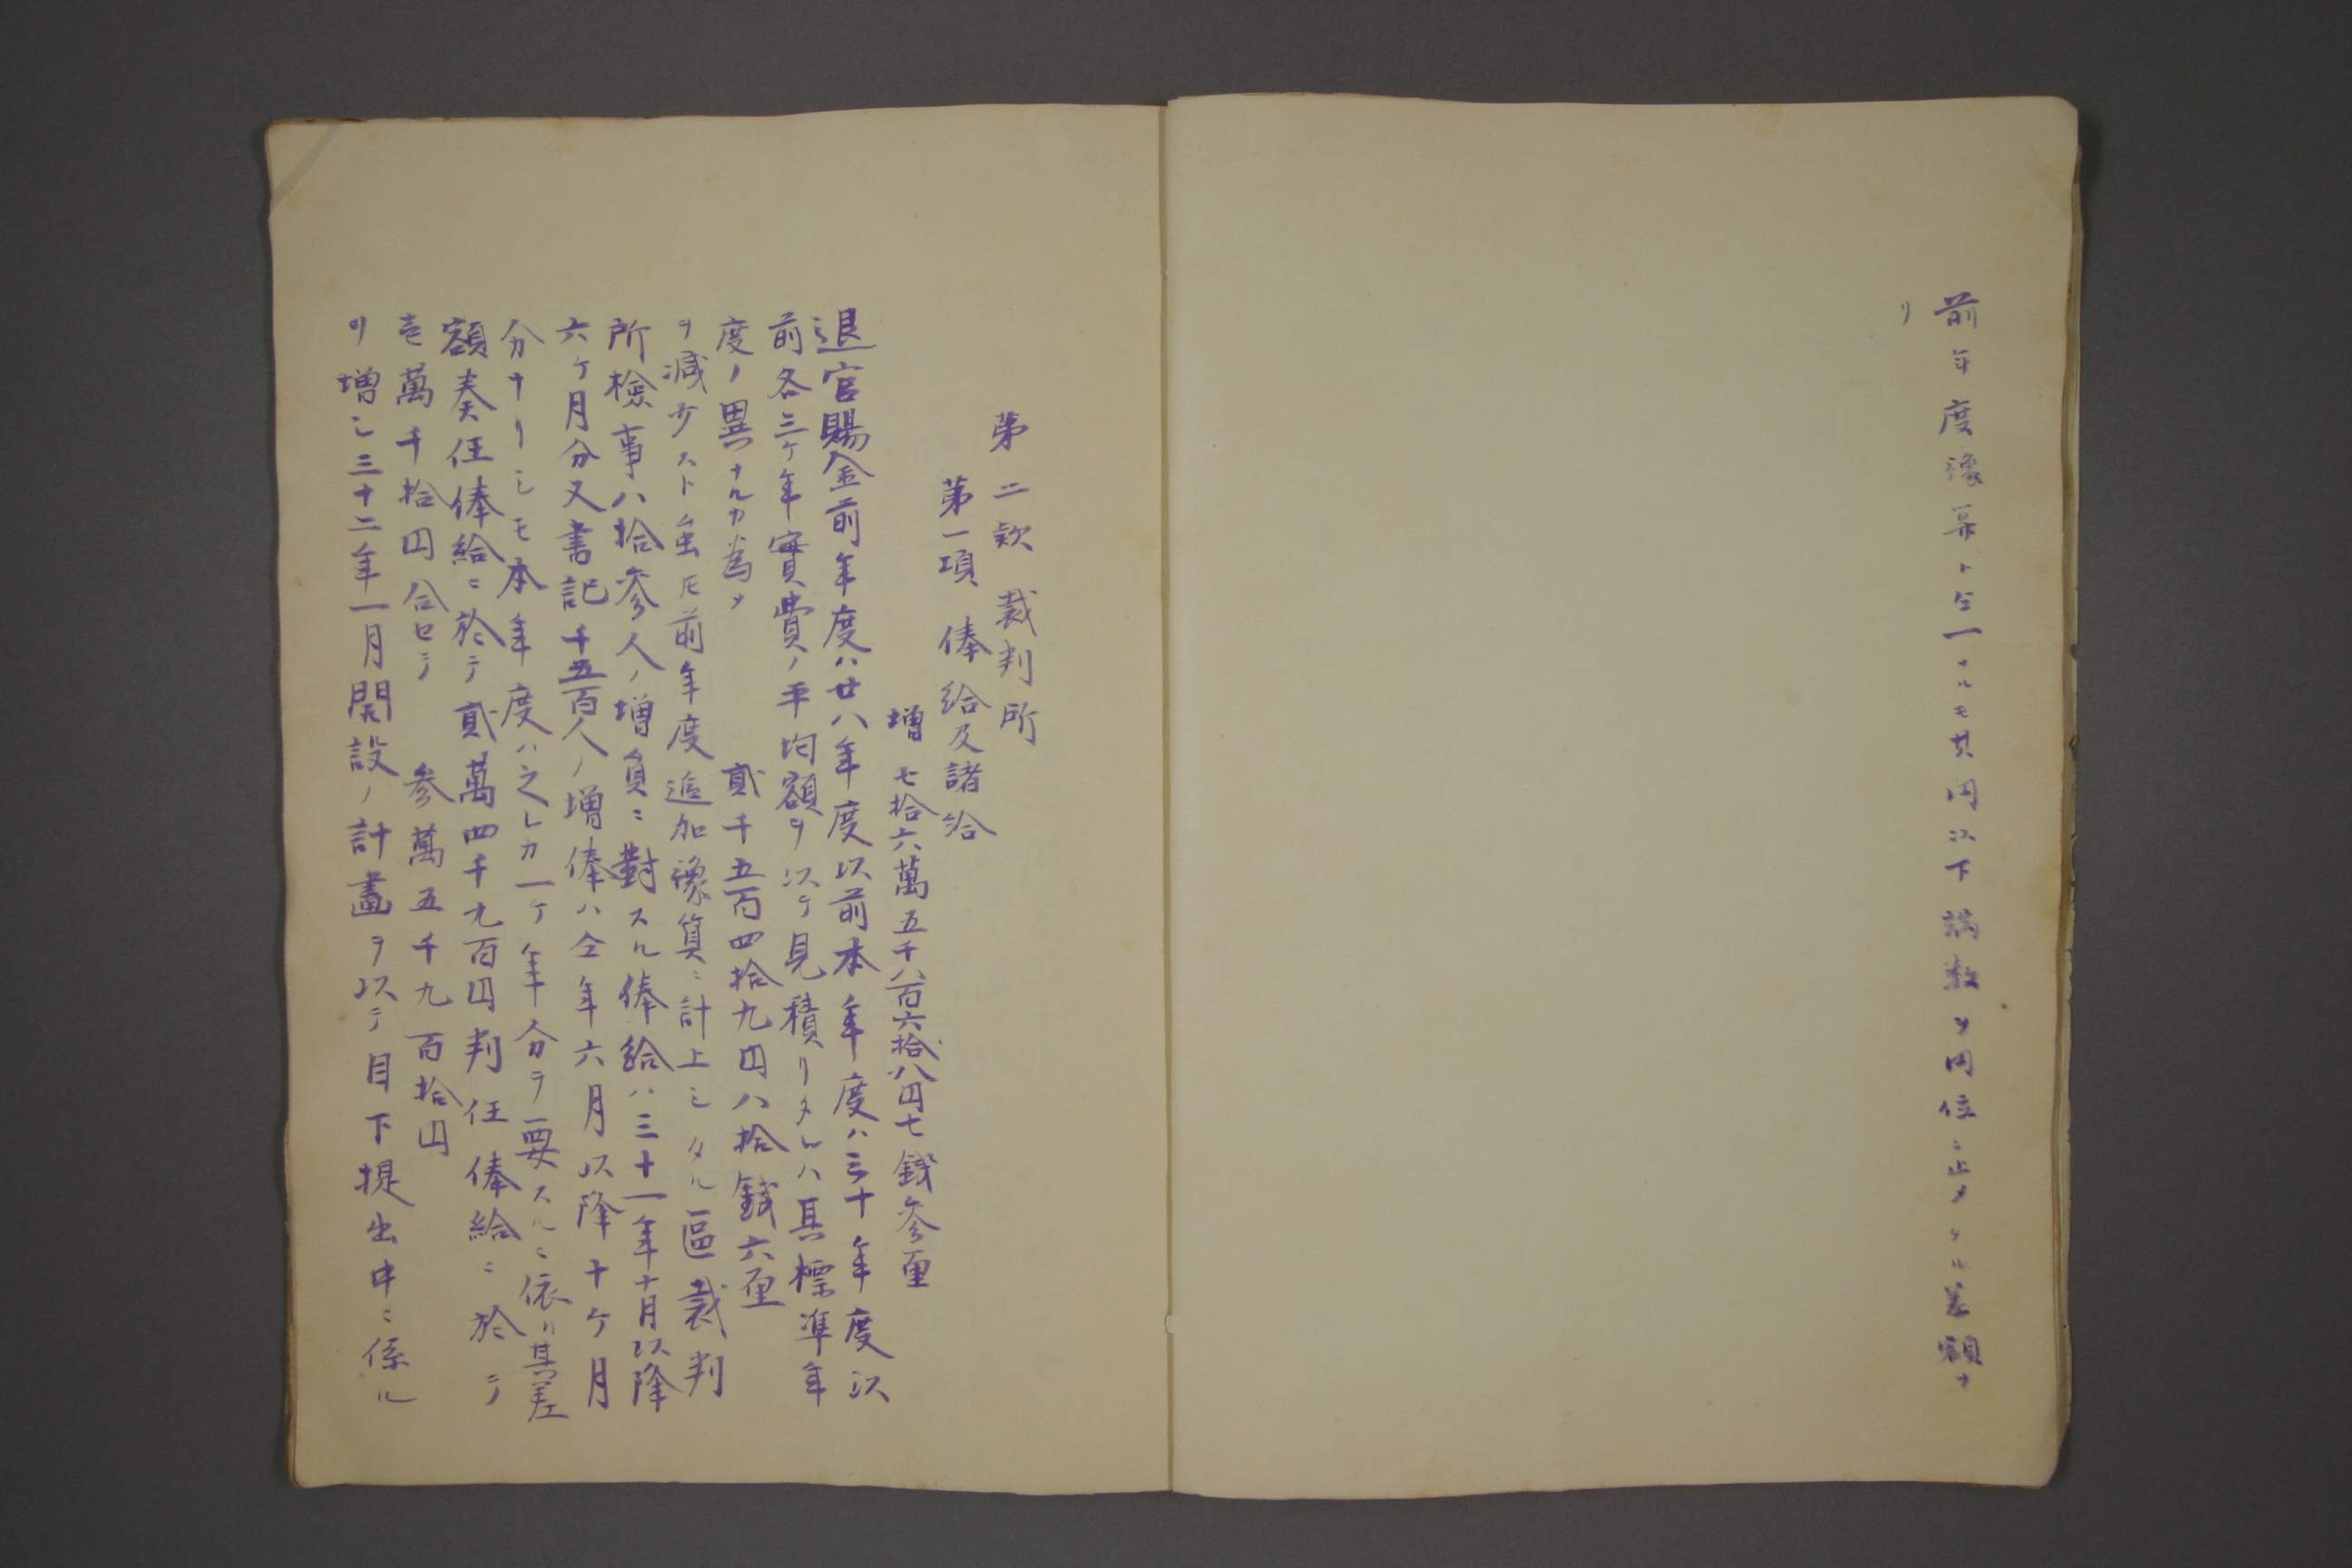 前年度豫算ト仝一ナルモ其円以下端数ヲ円位ニ止メタル差額ナ
リ
第二款 裁判所
第一項 俸給及諸給
増 七拾六萬五千八百六拾八円七銭参厘
退官賜金前年度ハ廿八年度以前本年度ハ三十年度以
前各三ケ年實費ノ平均額ヲ以テ見積リタルハ其標準年
度ノ異ナルカ為メ 貳千五百四拾九円八拾銭六厘
ヲ減少スト虽𪜈前年度追加豫算ニ計上シタル區裁判
所檢事八拾参人ノ増員ニ對スル俸給ハ三十一年十月以降
六ケ月分又書記千五百人ノ増俸ハ仝年六月以降十ケ月
分ナリシモ本年度ハ之レカ一ケ年分ヲ要スルニ依リ其差
額奏任俸給ニ於テ貳萬四千九百円判任俸給ニ於テ
壱萬千拾円合セテ 参萬五千九百拾円
ヲ増シ三十二年一月開設ノ計畫ヲ以テ目下提出中ニ係ル